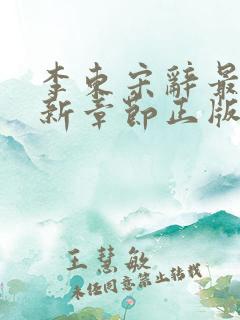 李东宋辞最
新章节正版
王慧敏
未经同意禁止转载